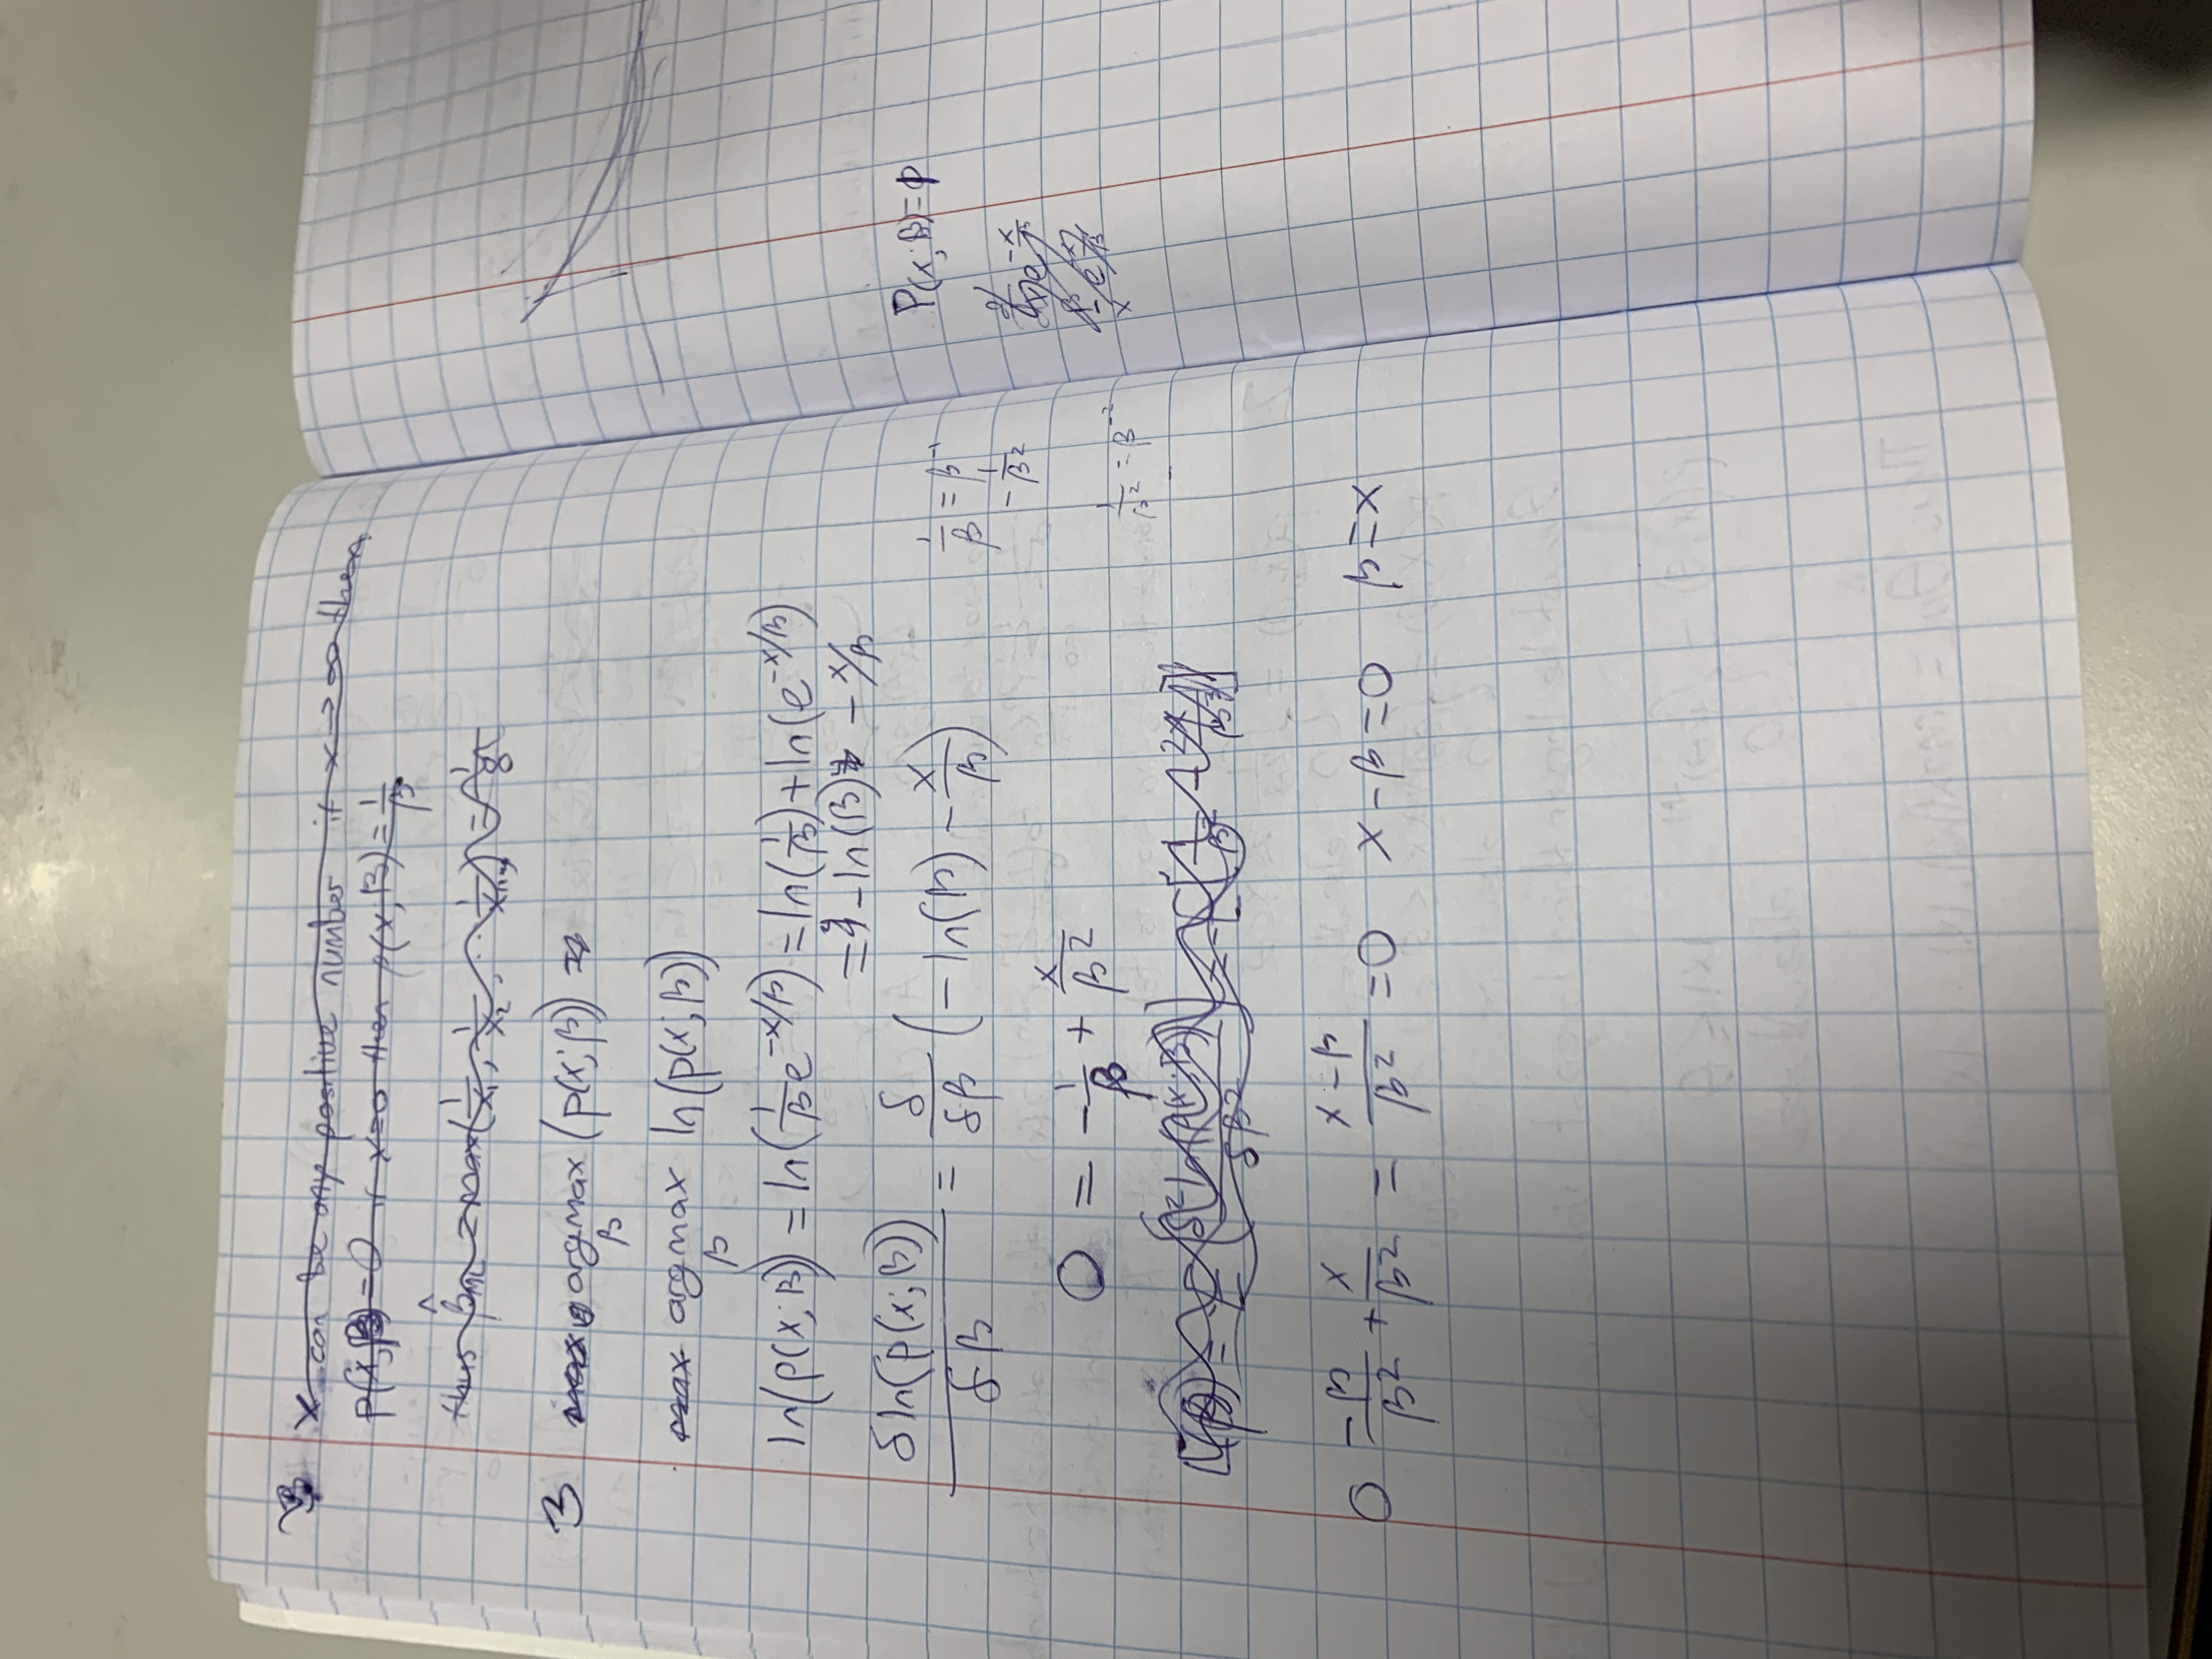 3 x can be any positive number if x → ∞ then
p(x;β) = 0 if x=0 then p(x,β) = 1/β
thus β̂ML = max(1/x₁, 1/x₂, ...
3 max argmax (p(x;β)) =
β
max argmax ln(p(x;β))
β
ln(p(x;β)) = ln(1/β e^(-x/β)) = ln(1/β) + ln(e^(-x/β))
= - ln(β) - x/β
δln(p(x;β))/δβ = δ/δβ (-ln(β) - x/β)
1/β = β⁻¹
-1/β²
0 = -1/β + x/β²
1/β² = β⁻²
-
δ² ln(p(x;β))/δβ²
0 -β/β² + x/β² = (x-β)/β² = 0 x-β=0 β=x
P(x;β) =